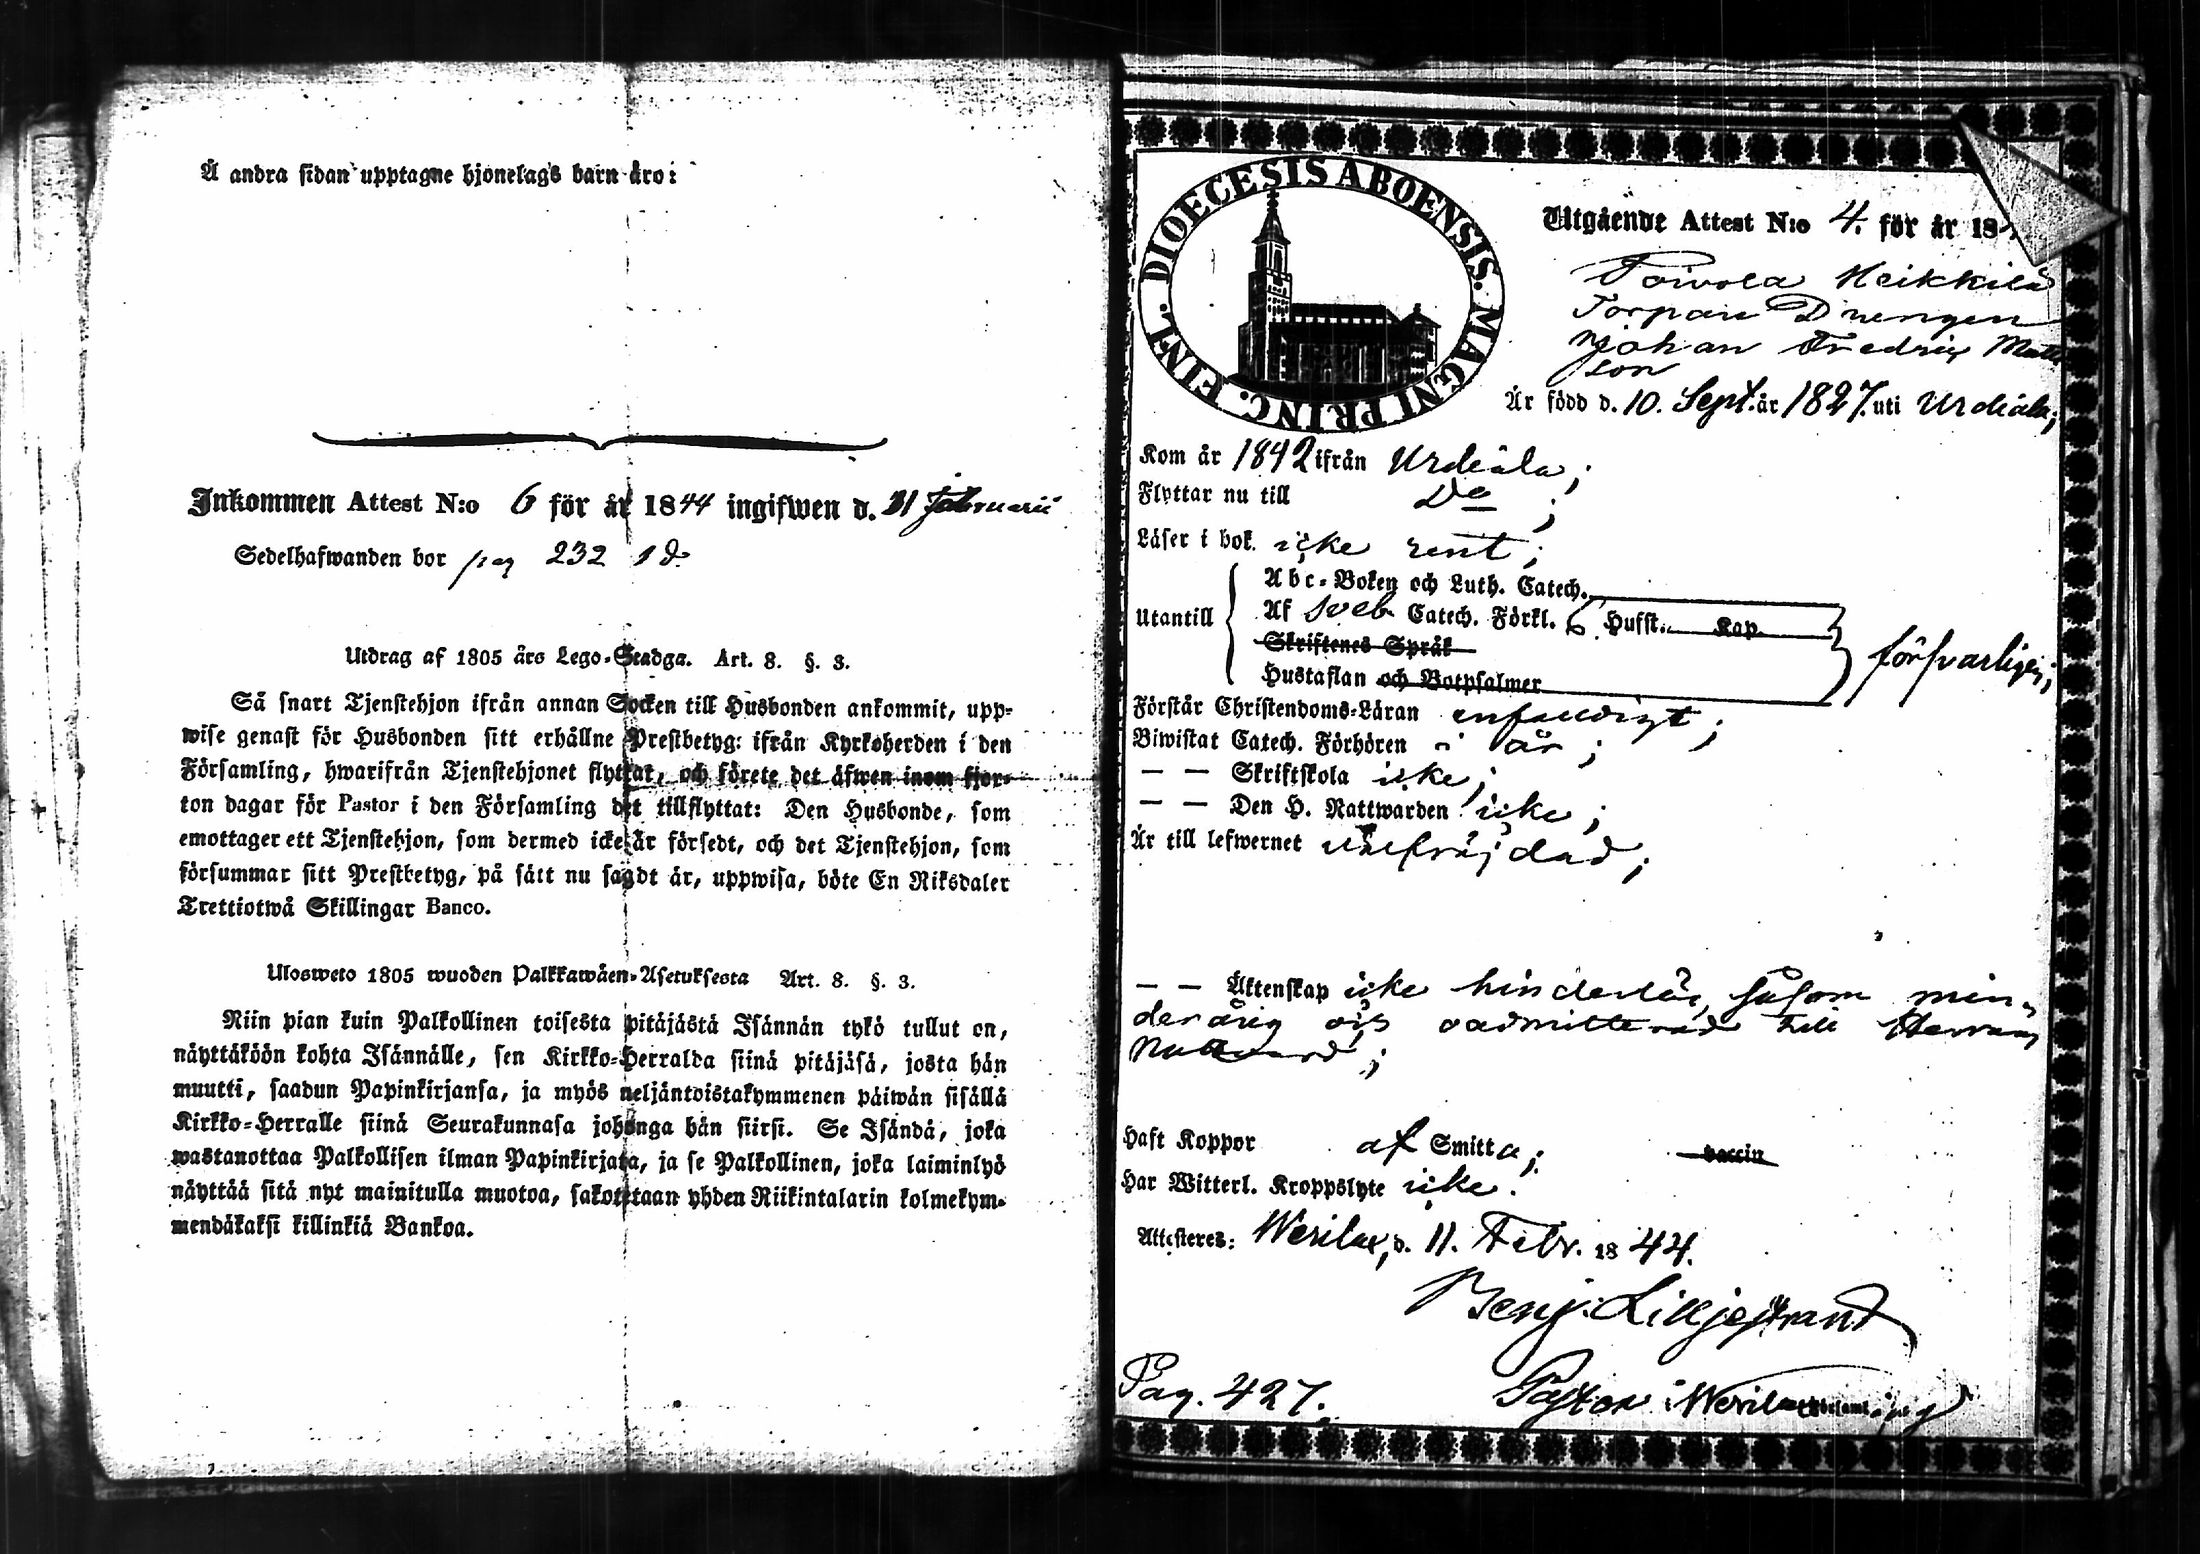 Å andra sidan upptagne hjonelags barn äro:
Inkommen Attest N:o 6 för år 1844 ingifwen d.
Sedelhafwanden bor pag 232
Utdrag af 1805 års Lego-Stadga. Art. 8. §. 3.
Så snart Tjenstehjon ifrån annan Socken till Husbonden ankommit, upp-
wise genast för Husbonden sitt erhållne Prestbetyg: ifrån Kyrkoherden i den
Församling, hwarifrån Tjenstehjonet flyttat, och förete det äfwen inom fjor-
ton dagar för Pastor i den Församling det tillflyttat: Den Husbonde, som
emottager ett Tjenstehjon, som dermed icke är försedt, och det Tjenstehjon, som
försummar sitt Prestbetyg, på sätt nu sagdt är, uppwisa, böte En Riksdaler
Trettiotwå Skillingar Banco.
Ulosweto 1805 wuoden Palkkawäen-Asetuksesta Art. 8. §. 3.
Niin pian kuin Palkollinen toisesta pitäjästä Isännän tykö tullut on,
näyttäköön kohta Isännälle, sen Kirkko-Herralda siinä pitäjäsä, josta hän
muutti, saadun Papinkirjansa, ja myös neljäntoistakymmenen päiwän sisällä
Kirkko-Herralle siinä Seurakunnasa johonga hän siirsi. Se Isändä, joka
wastanottaa Palkollisen ilman Papinkirjata, ja se Palkollinen, joka laiminlyö
näyttää sitä nyt mainitulla muotoa, sakotetaan yhden Riikintalarin kolmekym-
mendäkaksi killinkiä Bankoa.
DIOECESIS ABOENSIS. MAGNI PRINC. FINL.
Utgående Attest N:o 4. för år 18
Toivola Heikkilä
Torpare Drengen
Johan Fredric Matts
son
Är född d. 10. Sept. år 1827. uti Urdiala;
Kom år 1842 ifrån Urdiala;
Flyttar nu till Do;
Läser i bok icke rent;
Abc-Boken och Luth. Catech.
Utantill Af Sveb. Catech. Förkl. 6 Hufst. Kap. försvarligen;
Skriftenes Språk
Hustaflan och Botpsalmer
Förstår Christendoms-Läran enfaldigt;
Biwistat Catech. Förhören i år;
— — Skriftskola icke;
— — Den H. Nattwarden icke;
Är till lefwernet välfräjdad;
— — Äktenskap icke hinderlös, såsom min-
derårig och oadmitterad till Herrans
Nattvard;
Haft Koppor af Smitta; vaccin
Har Witterl. Kroppslyte icke.
Attesteres: Werilax, d. 11. Febr. 1844.
Benj. Lilljestrand
Pag. 427. Pastor i